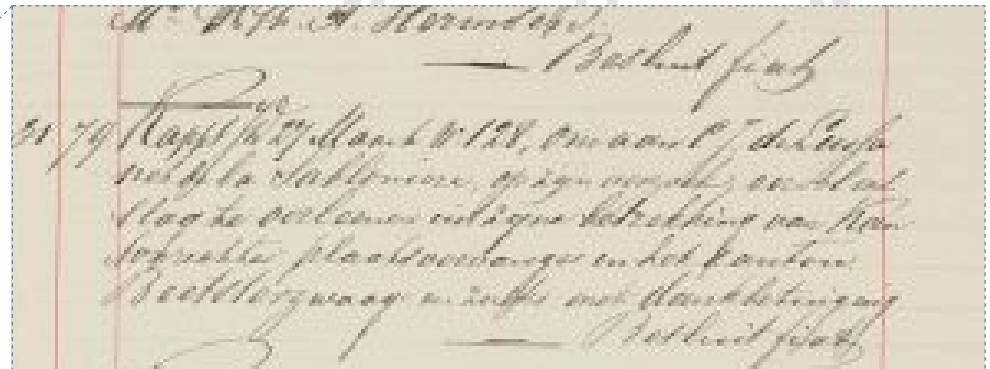 Besluit fiat
31/79 Rapp. 27 Maart No 128, om aan P. J. de
van de la Sablonière, op zijn verzoek, eervol ont
slag te verleenen uit zijne betrekking van Kan
tonrechter plaatsvervanger in het kanton
Beetsterzwaag met dankbetuiging
Besluit fiat